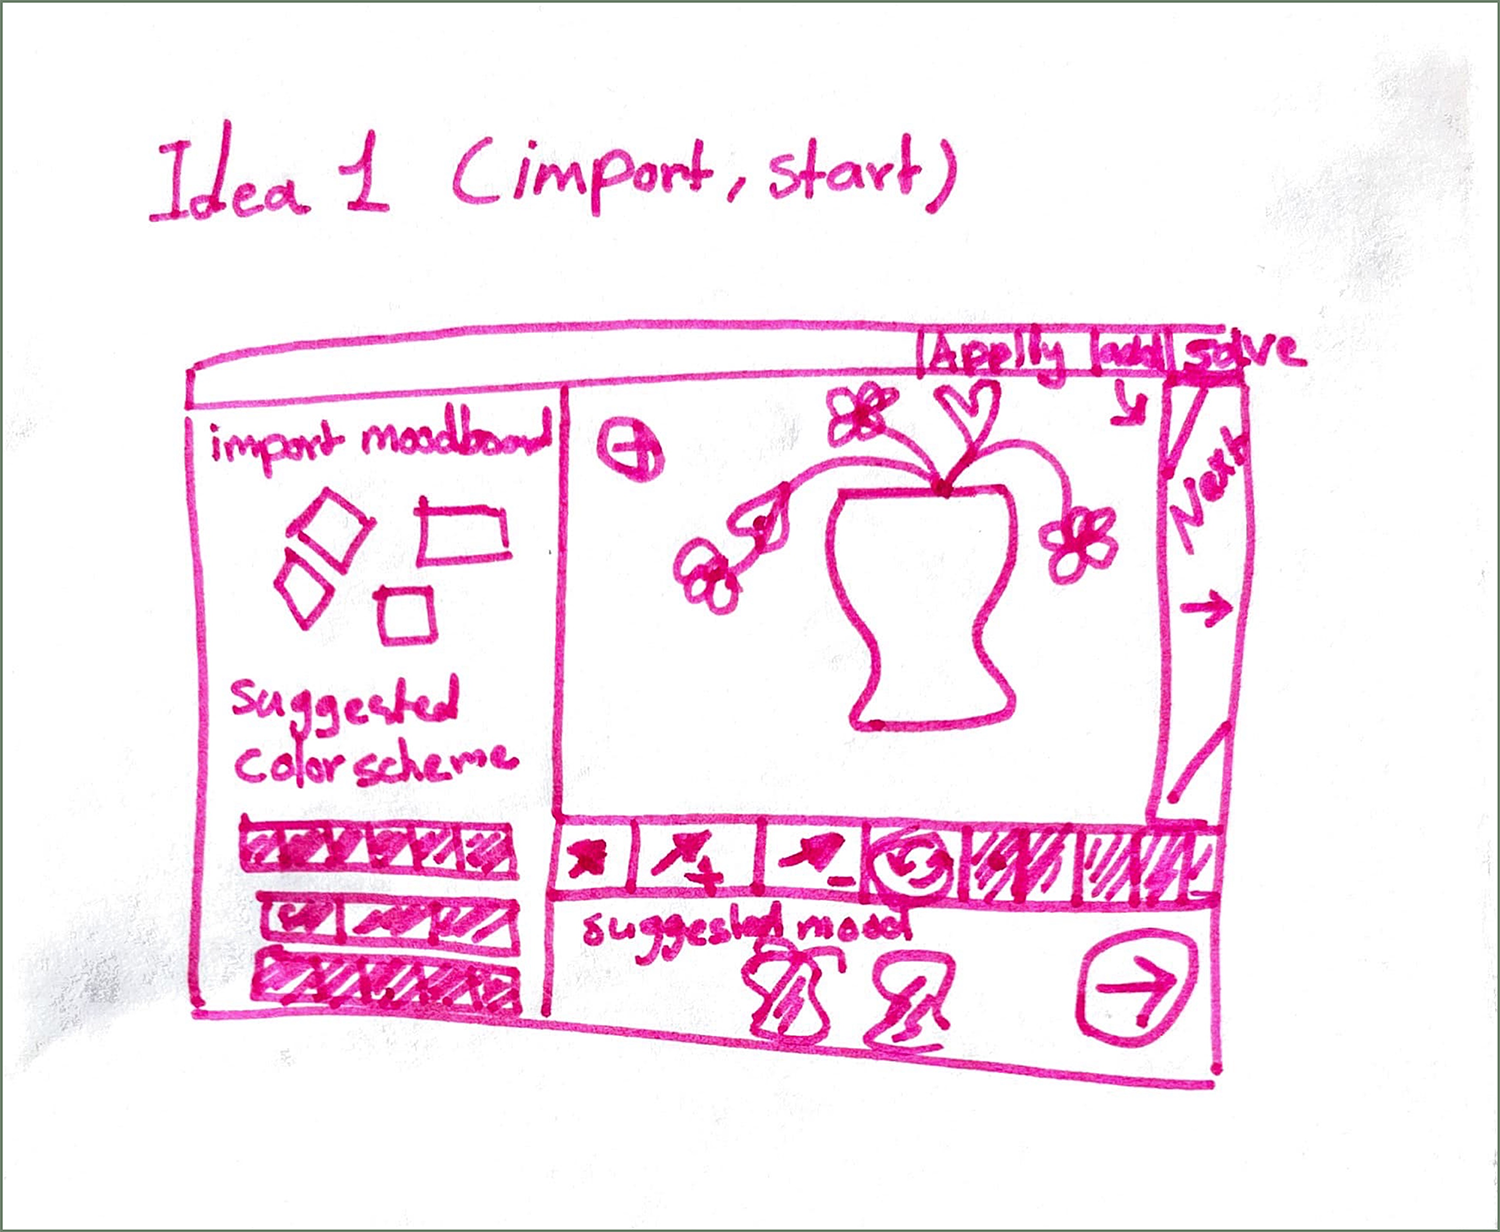 Idea 1 (import, start)
Applly add solve
import moodboard
Next
suggested
Color scheme
suggested model